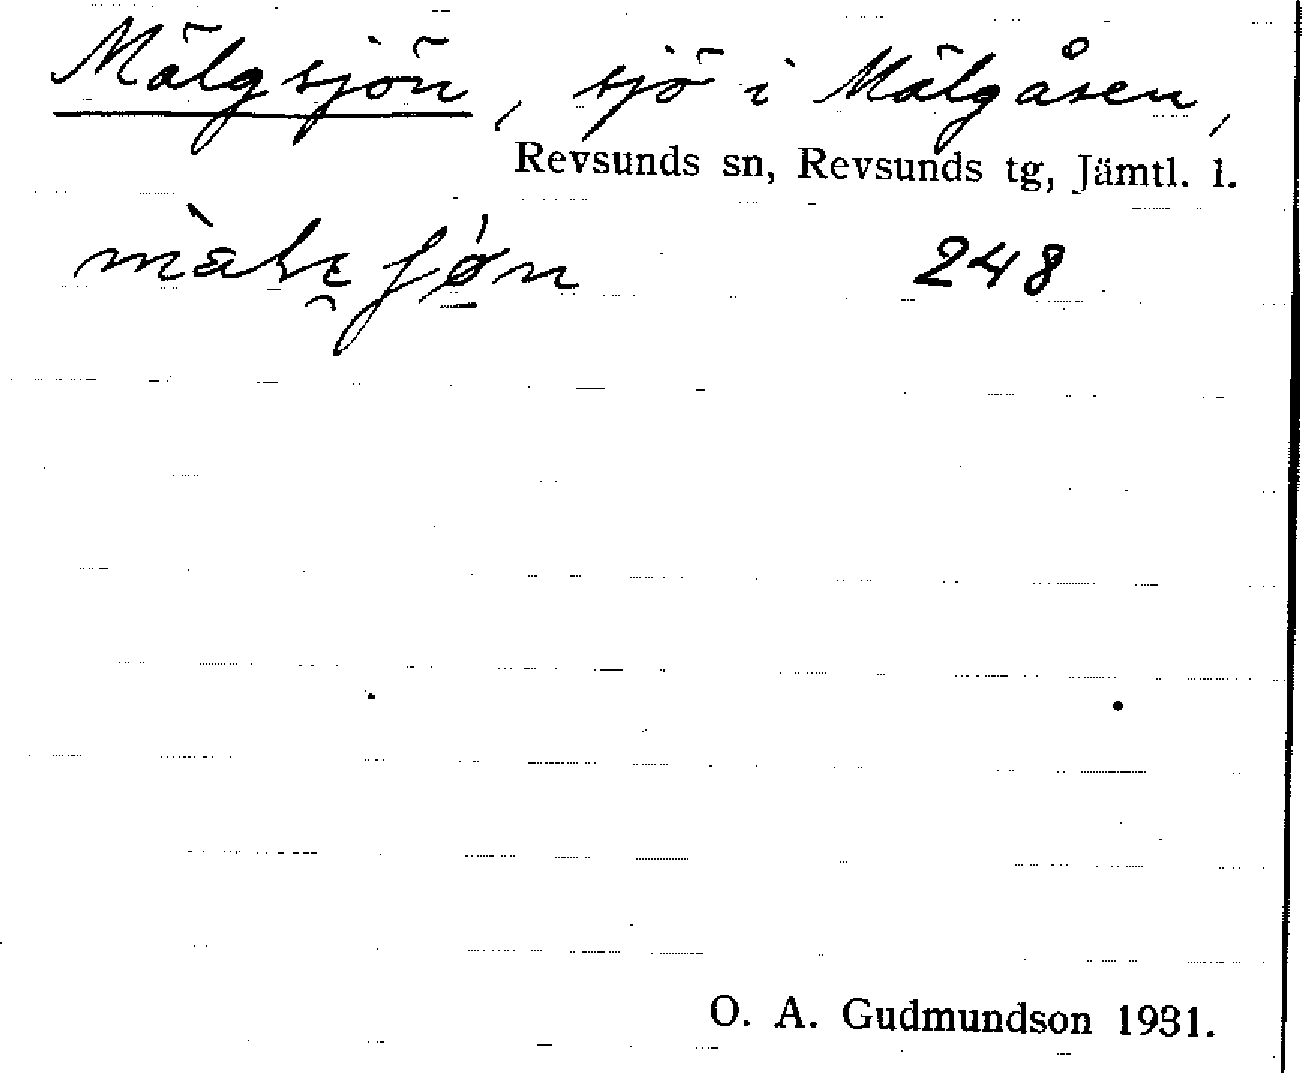 Mälgsjön, sjö i Mälgåsen,
Revsunds sn, Revsunds tg, Jämtl. l.
248
O. A. Gudmundson 1931.